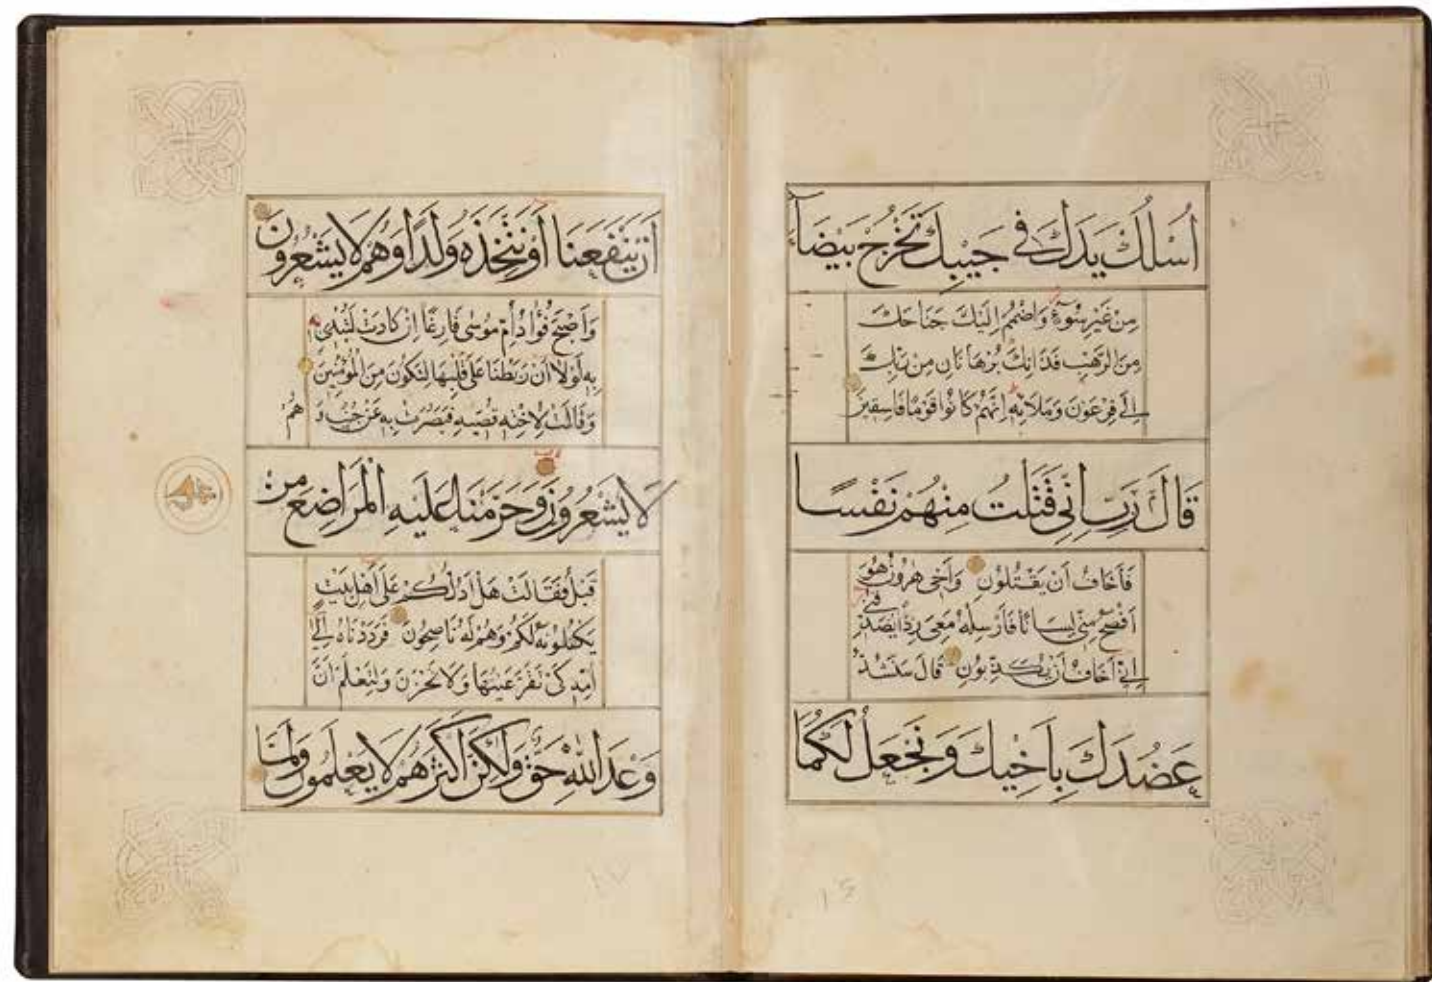 اُسْلُكْ يَدَكَ فِي جَيْبِكَ تَخْرُجْ بَيْضَاءَ
مِنْ غَيْرِ سُوءٍ وَاضْمُمْ اِلَيْكَ جَنَاحَكَ
مِنَ الرَّهْبِ فَذَانِكَ بُرْهَانَانِ مِنْ رَبِّكَ
اِلَى فِرْعَوْنَ وَمَلَائِهِ اِنَّهُمْ كَانُوا قَوْمًا فَاسِقِينَ
قَالَ رَبِّ اِنِّي قَتَلْتُ مِنْهُمْ نَفْسًا
فَاَخَافُ اَنْ يَقْتُلُونِ وَاَخِي هَرُونُ هُوَ
اَفْصَحُ مِنِّي لِسَانًا فَاَرْسِلْهُ مَعِيَ رِدْءًا يُصَدِّقُنِي
اِنِّي اَخَافُ اَنْ يُكَذِّبُونِ قَالَ سَنَشُدُّ
عَضُدَكَ بِاَخِيكَ وَنَجْعَلُ لَكُمَا
اَنْ يَنْفَعَنَا اَوْ نَتَّخِذَهُ وَلَدًا وَهُمْ لَا يَشْعُرُونَ
وَاَصْبَحَ فُؤَادُ اُمِّ مُوسَى فَارِغًا اِنْ كَادَتْ لَتُبْدِي
بِهِ لَوْلَا اَنْ رَبَطْنَا عَلَى قَلْبِهَا لِتَكُونَ مِنَ الْمُؤْمِنِينَ
وَقَالَتْ لِاُخْتِهِ قُصِّيهِ فَبَصُرَتْ بِهِ عَنْ جُنُبٍ وَهُمْ
لَا يَشْعُرُونَ وَحَرَّمْنَا عَلَيْهِ الْمَرَاضِعَ مِنْ
قَبْلُ فَقَالَتْ هَلْ اَدُلُّكُمْ عَلَى اَهْلِ بَيْتٍ
يَكْفُلُونَهُ لَكُمْ وَهُمْ لَهُ نَاصِحُونَ فَرَدَدْنَاهُ اِلَى
اُمِّهِ كَيْ تَقَرَّ عَيْنُهَا وَلَا تَحْزَنَ وَلِتَعْلَمَ اَنَّ
وَعْدَ اللّٰهِ حَقٌّ وَلَكِنَّ اَكْثَرَهُمْ لَا يَعْلَمُونَ وَلَمَّا